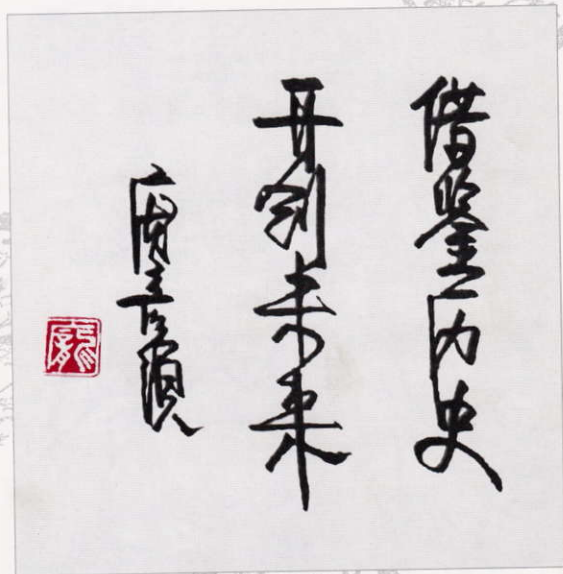 借鉴历史
开创未来